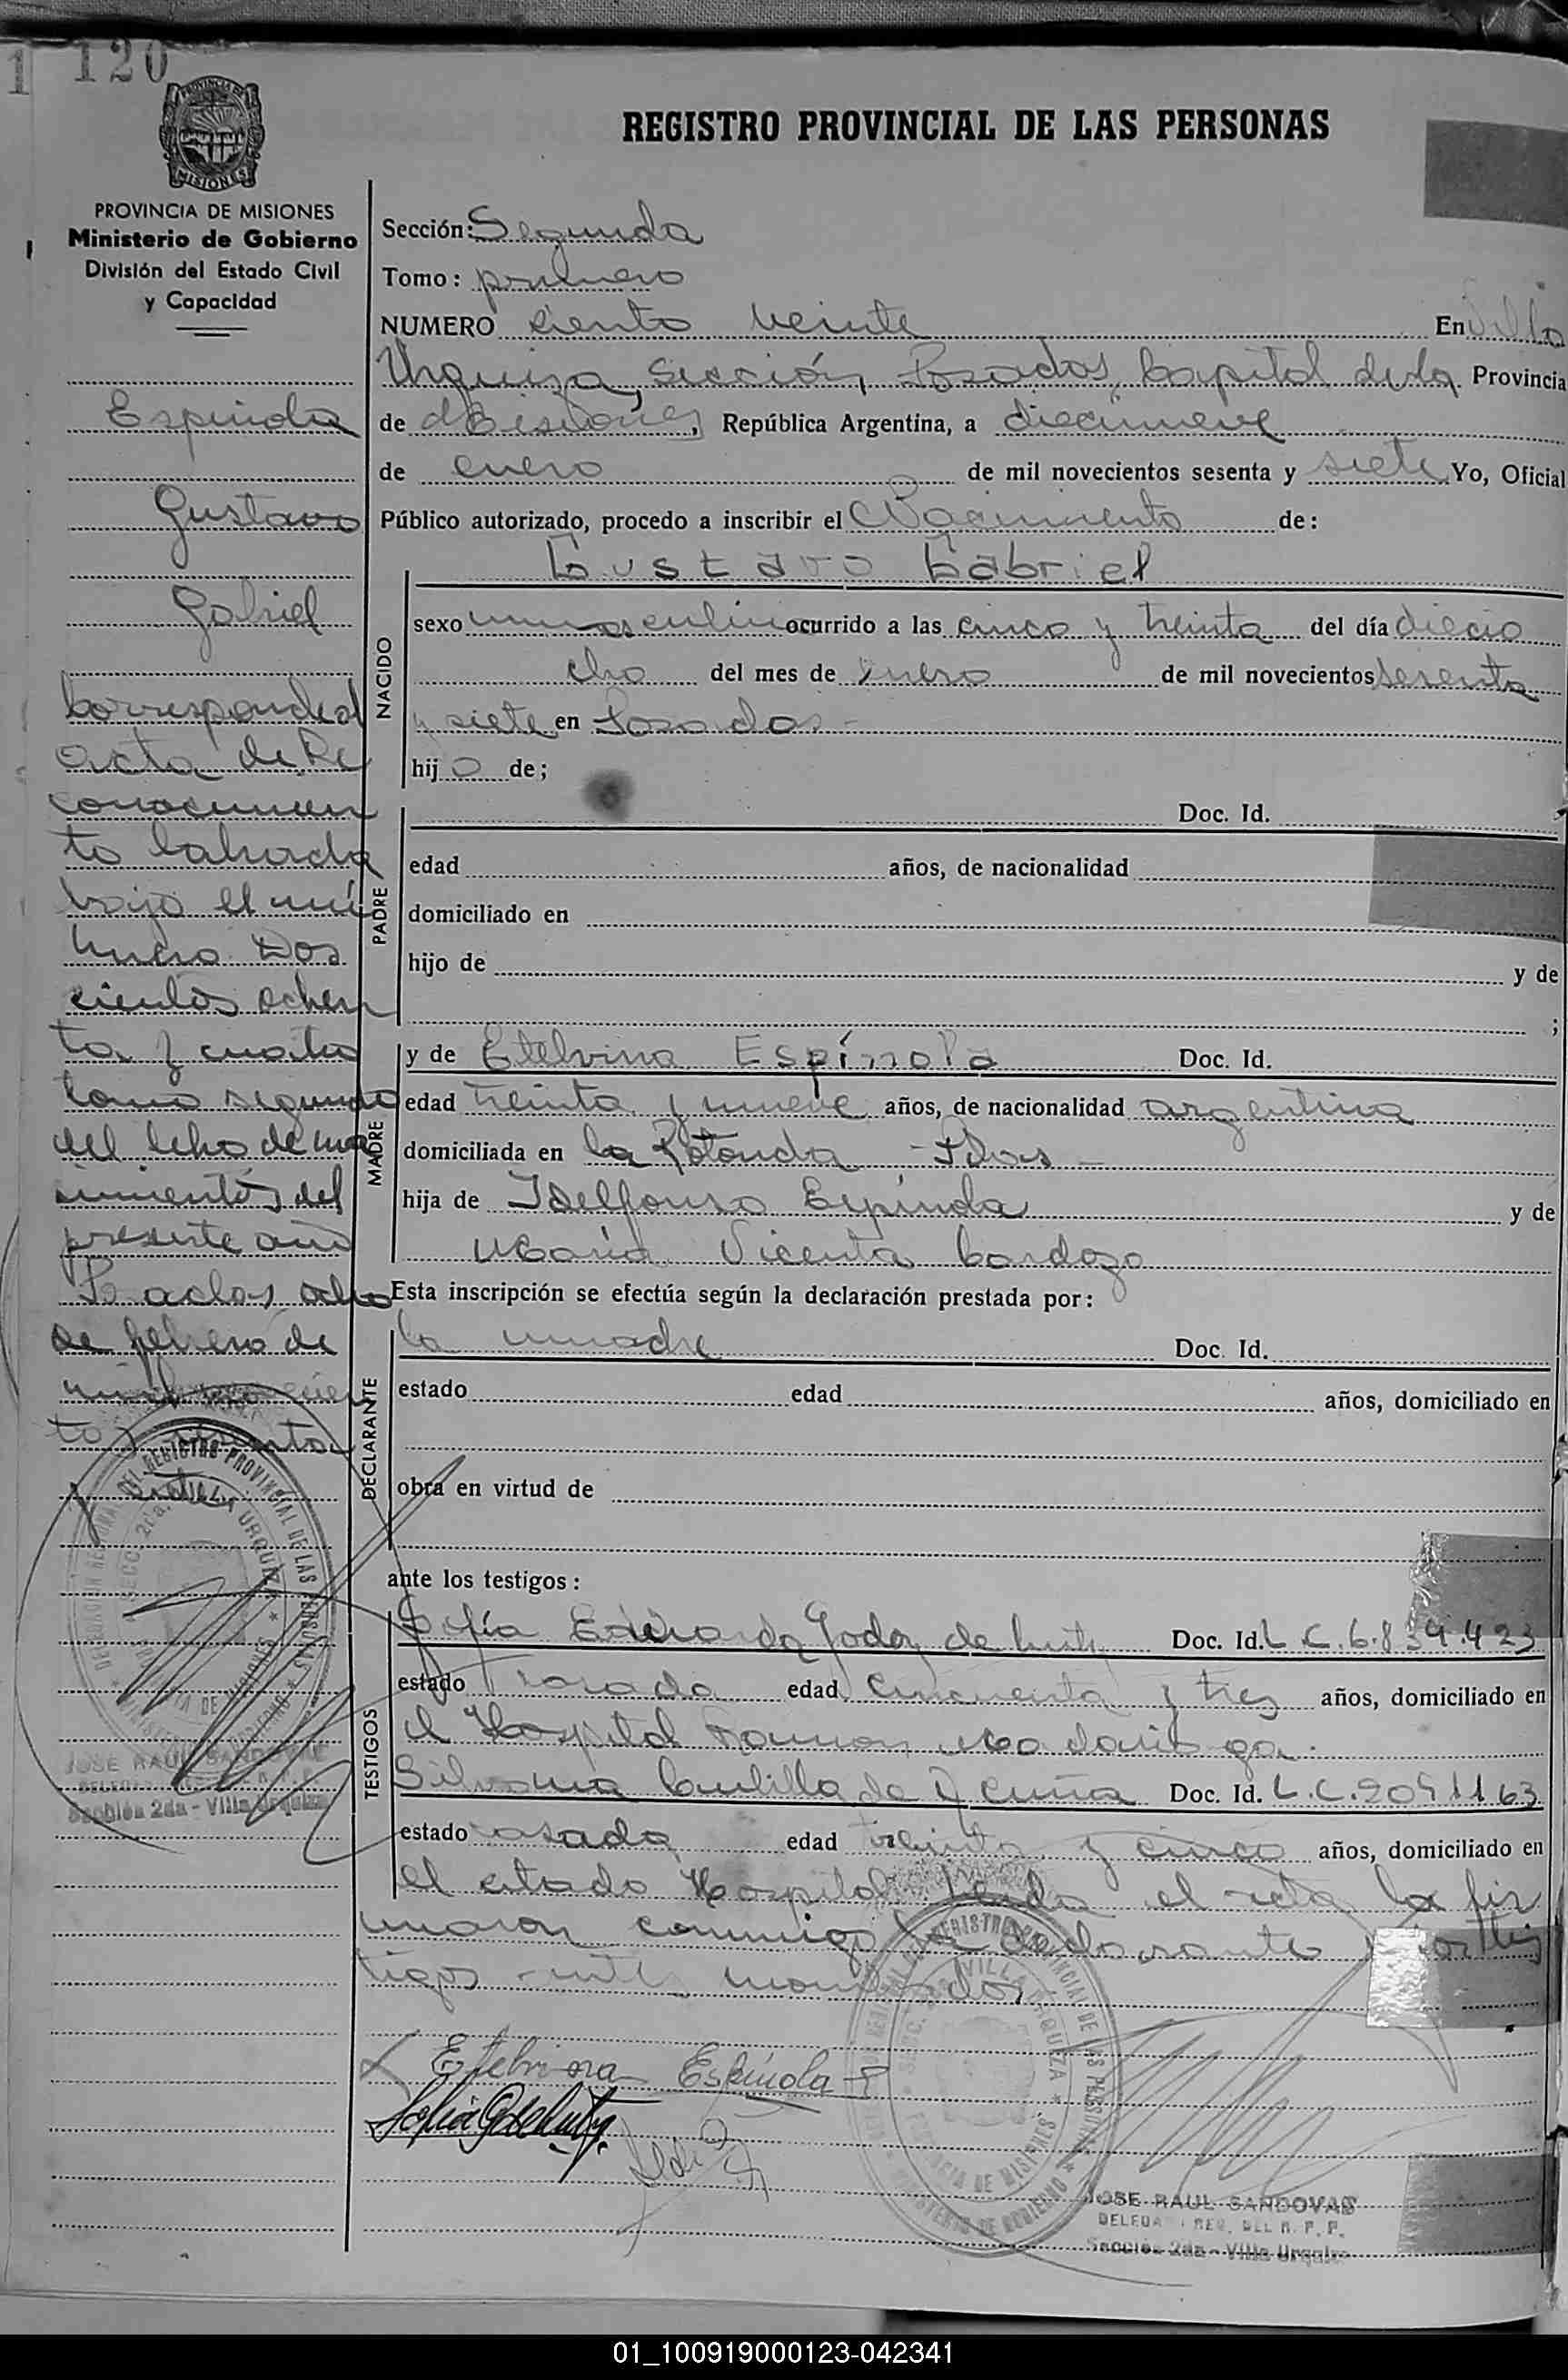 120
REGISTRO PROVINCIAL DE LAS PERSONAS
PROVINCIA DE MISIONES
Ministerio de Gobierno
División del Estado Civil
y Capacidad
Espindola
Gustavo
Gabriel
Corresponde al
acta de Re
conocimien
to labrada
bajo el nú
mero Dos
cientos ochen
ta y cuatro
tomo segundo
del libro de na
cimientos del
presente año
Posadas, ocho
de febrero de
mil novecien
tos sesenta
y siete
JOSE RAUL SANDOVAL
Sección 2da - Villa Urquiza
Sección: Segunda
Tomo: primero
NUMERO ciento veinte En Villa
Urquiza, Sección, Posadas, Capital de la Provincia
de Misiones, República Argentina, a diecinueve
de enero de mil novecientos sesenta y siete Yo, Oficial
Público autorizado, procedo a inscribir el Nacimiento de:
NACIDO
Gustavo Gabriel
sexo masculino ocurrido a las cinco y treinta del día diecio
cho del mes de enero de mil novecientos sesenta
y siete en Posadas-
hijo de;
PADRE
Doc. Id.
edad años, de nacionalidad
domiciliado en
hijo de y de
;
MADRE
y de Etelvina Espínola Doc. Id.
edad treinta y nueve años, de nacionalidad argentina
domiciliada en la Rotonda - Pdas -
hija de Idelfonso Espindola y de
María Vicenta Cardozo
Esta inscripción se efectúa según la declaración prestada por:
DECLARANTE
la madre Doc. Id.
estado edad años, domiciliado en
obra en virtud de
ante los testigos:
TESTIGOS
Sofía Eduarda Godoy de Doc. Id. L.C. 6.839.423
estado casada edad cincuenta y tres años, domiciliado en
el Hospital Ramon Madariaga.
Silvana de Acuña Doc. Id. L.C. 2091163
estado casada edad treinta y cinco años, domiciliado en
el citado Hospital. Leida el acta la fir
maron conmigo la declarante y los tes
tigos
Etelvina Espínola
JOSE RAUL SANDOVAL
Sección 2da - Villa Urquiza
REGISTRO PROVINCIAL DE LAS PERSONAS
SECC. 2da. VILLA URQUIZA
PROVINCIA DE MISIONES
MINISTERIO DE GOBIERNO
01_100919000123-042341